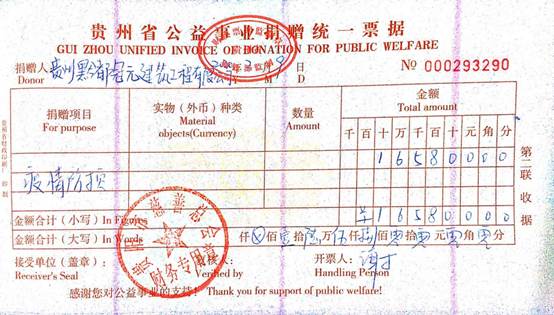 贵州省公益事业捐赠统一票据
GUI ZHOU UNIFIED INVOICE OF DONATION FOR PUBLIC WELFARE
捐赠人 贵州黔 元建筑工程有限公司 年 月 9 日
Donor
№ 000293290
捐赠项目 实物（外币）种类 数量 金额
For purpose Material Amount Total amount
objects(Currency) 千 百 十 万 千 百 十 元 角 分
1 6 5 8 0 0 0 0
疫情防预
金额合计（小写）In Figures ¥ 1 6 5 8 0 0 0 0
金额合计（大写）In Words 仟 ⊗ 佰 壹 拾 陆 万 伍 仟 捌 佰 零 拾 零 元 零 角 零 分
接受单位（盖章）： 复核人： 开票人：
Receiver's Seal Verified by Handling Person
感谢您对公益事业的支持！Thank you for support of public welfare!
第二联 收据
慈善总会
财务专用章